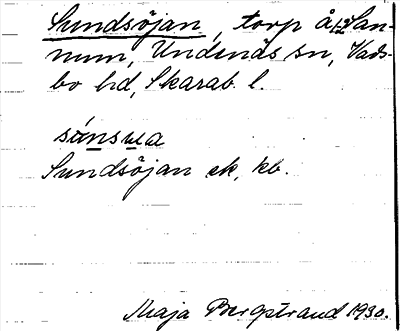 Sundsöjan, torp å 1/2 San-
num, Undenäs sn, Vads-
bo hd, Skarab. l.
sunsua
Sundsöjan ek, kb.
Maja Bergstrand 1930.